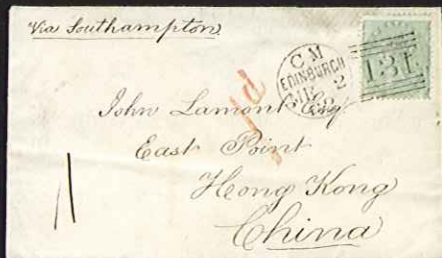 Via Southampton
C M
EDINBURGH
2
131
1d
John Lamont Esq.
East Point
Hong Kong
China